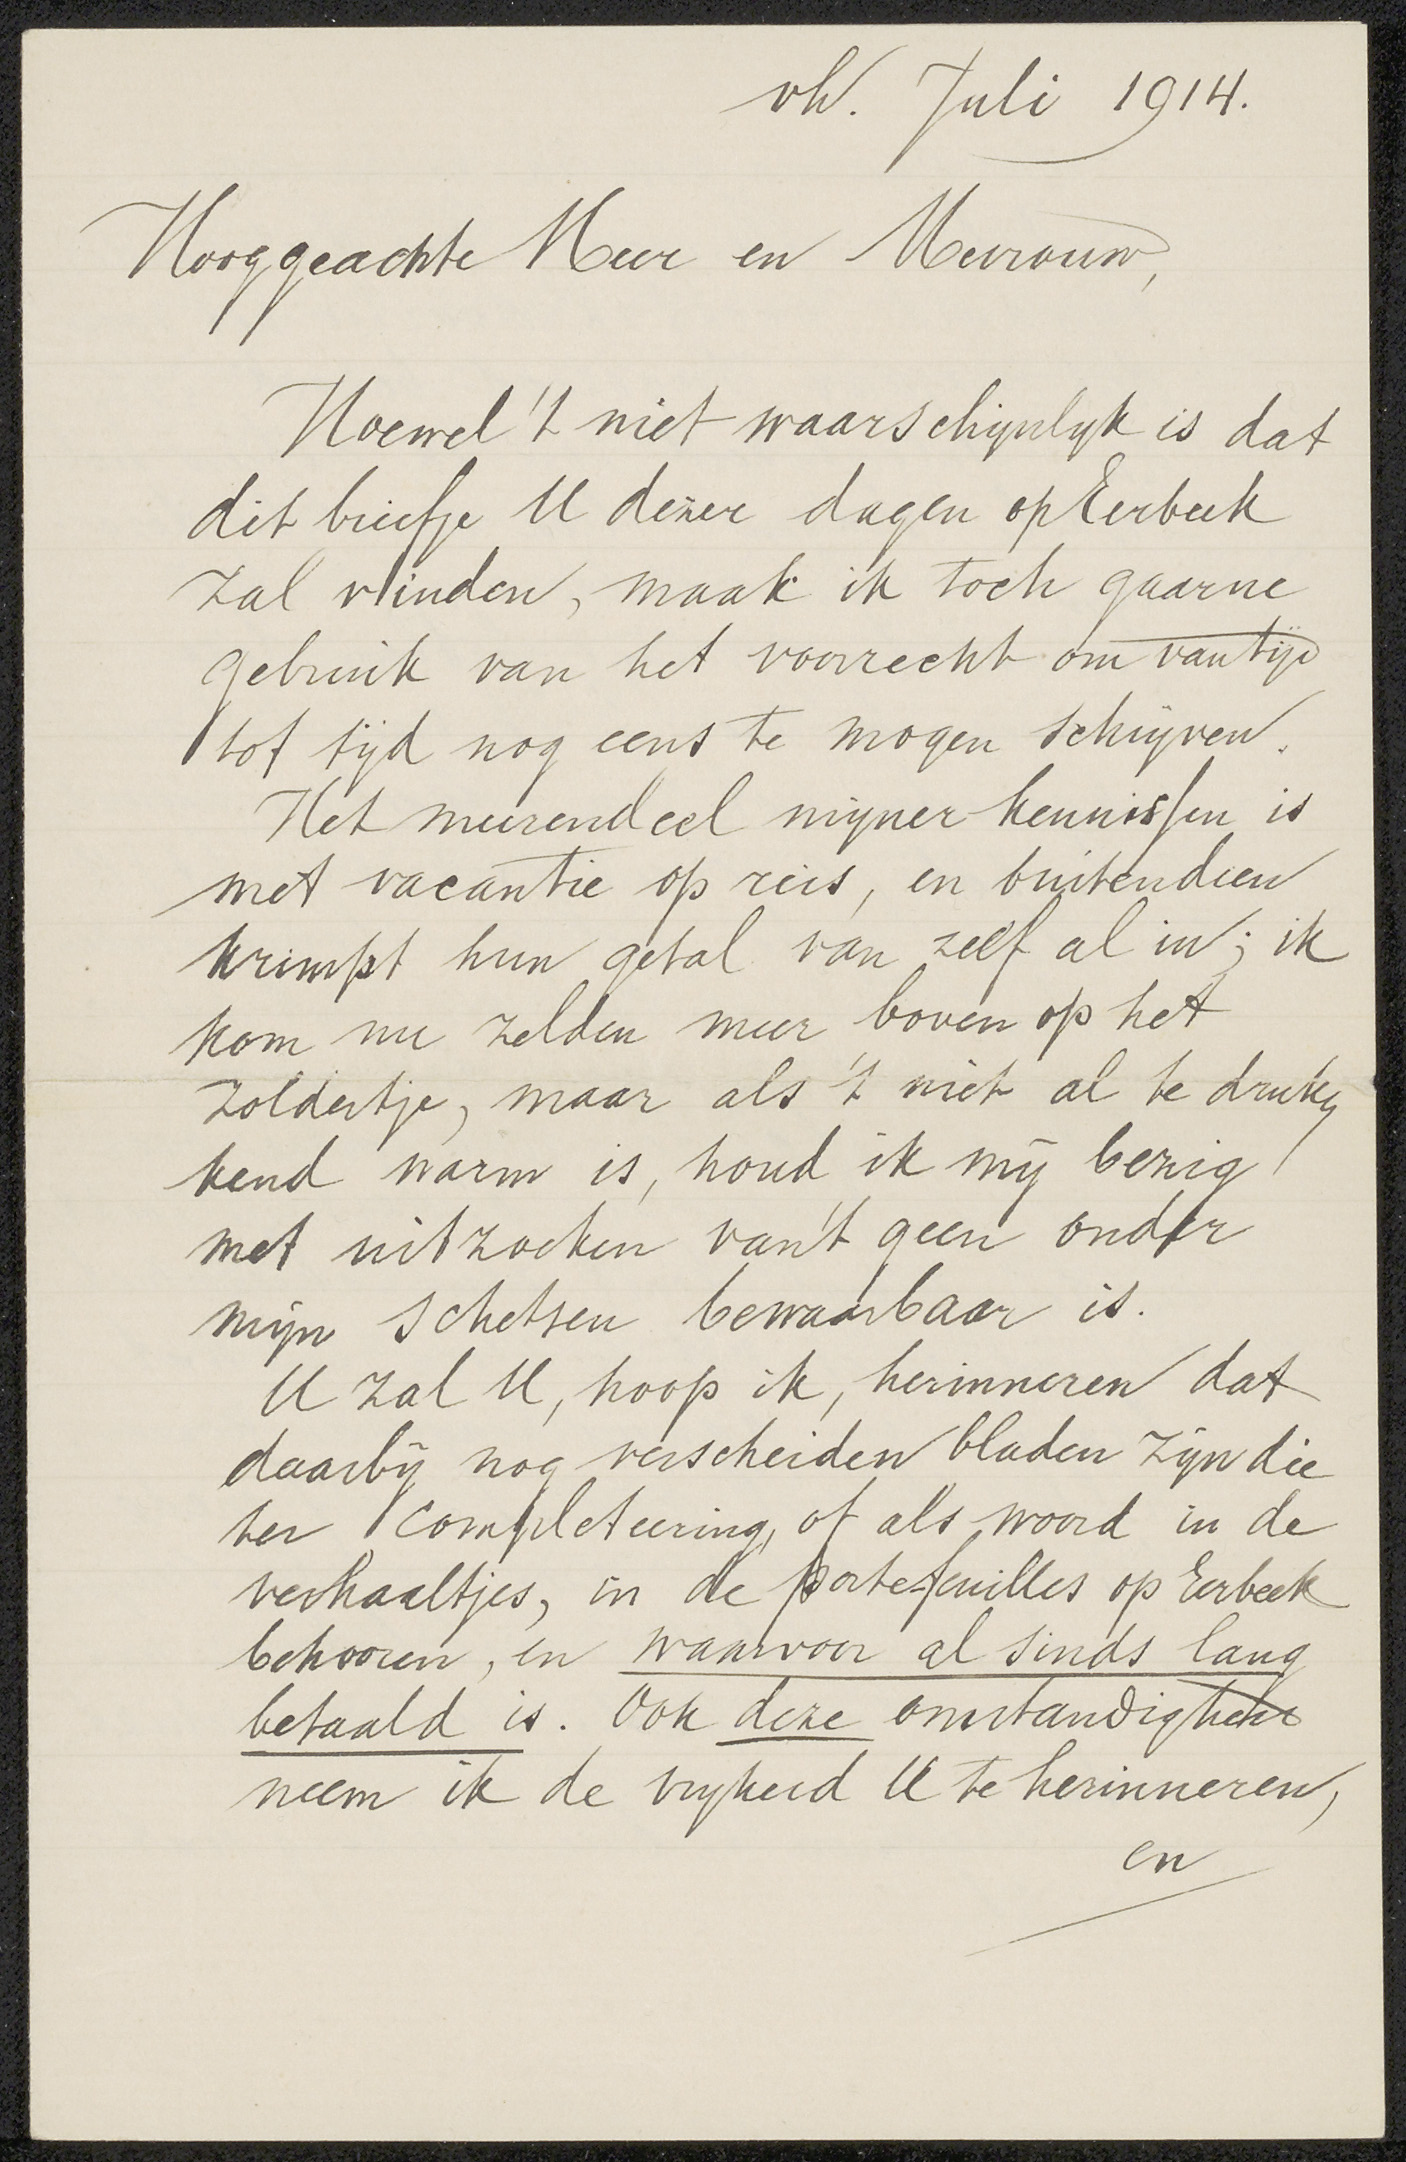 vh. Juli 1914.
Hooggeachte Heer en Mevrouw,
Hoewel 't niet waarschijnlyk is dat
dit briefje U dezer dagen op Eerbeek
zal vinden, maak ik toch gaarne
gebruik van het voorrecht om van tijd
tot tijd nog eens te mogen schrijven.
Het meerendeel mijner kennissen is
met vacantie op reis, en buitendien
krimpt hun getal van zelf al in; ik
kom nu zelden meer boven op het
zoldertje, maar als 't niet al te druk,
kend warm is, houd ik mij bezig
met uitzoeken van 't geen onder
mijn schetsen bewaarbaar is.
U zal U, hoop ik, herinneren dat
daarbij nog verscheiden bladen zijn die
ter completeering, of als woord in de
verhaaltjes, in de portefeuilles op Eerbeek
behooren, en waarvoor al sinds lang
betaald is. Ook deze omstandigheid
neem ik de vryheid U te herinneren,
en